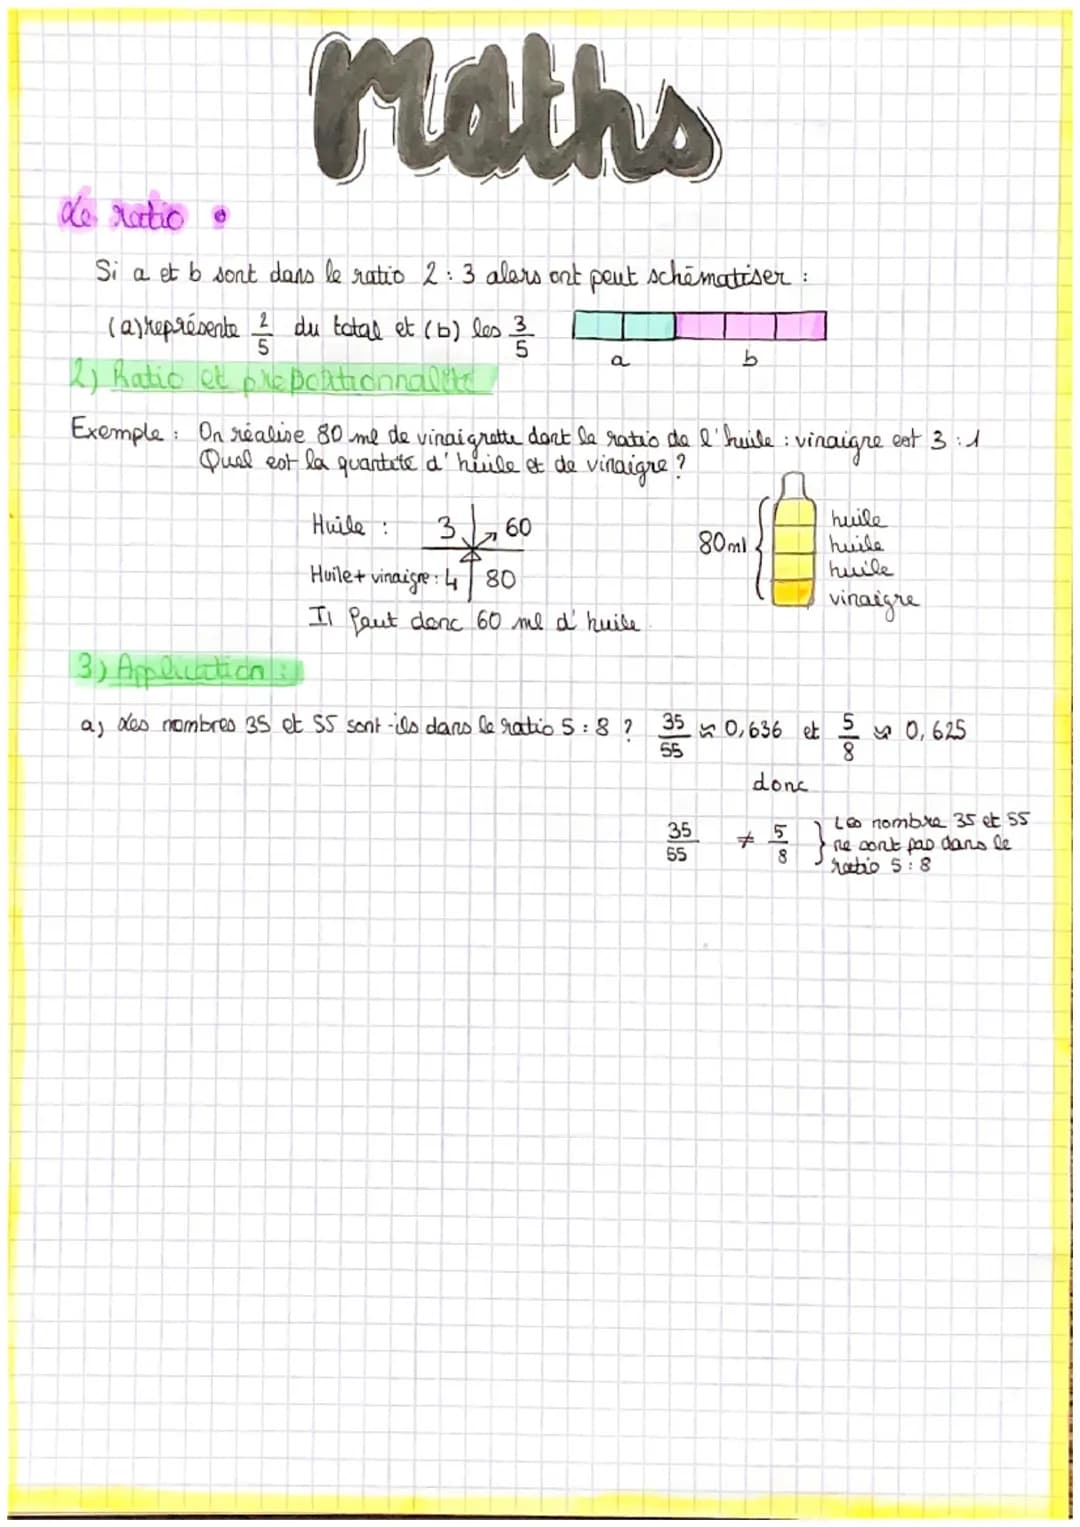 Maths
Le ratio :
Si a et b sont dans le ratio 2 : 3 alors ont peut schématiser :
(a) représente 2/5 du total et (b) les 3/5
a b
2) Ratio et proportionnalité
Exemple : On réalise 80 ml de vinaigrette dont le ratio de l'huile : vinaigre est 3 : 1
Quel est la quantité d'huile et de vinaigre ?
Huile : 3 60
Huile + vinaigre : 4 80
80ml
huile
huile
huile
vinaigre
Il faut donc 60 ml d'huile
3) Application :
a) Les nombres 35 et 55 sont-ils dans le ratio 5 : 8 ? 35/55 ≈ 0,636 et 5/8 ≈ 0,625
donc
35/55 ≠ 5/8 } Les nombre 35 et 55
ne sont pas dans le
ratio 5 : 8